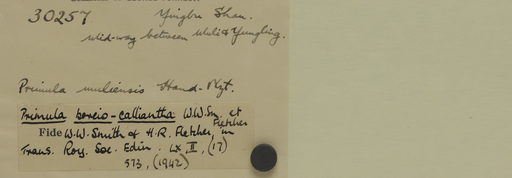 30257 Yingbu Shan.
Mid-way between Muli & Yungling.
Primula muliensis Hand-Mzt.
Primula boreio-calliantha W.W.Sm. et Fletcher
Fide W.W. Smith & H.R. Fletcher, in
Trans. Roy. Soc. Edin. LX, II, (17)
573, (1942)